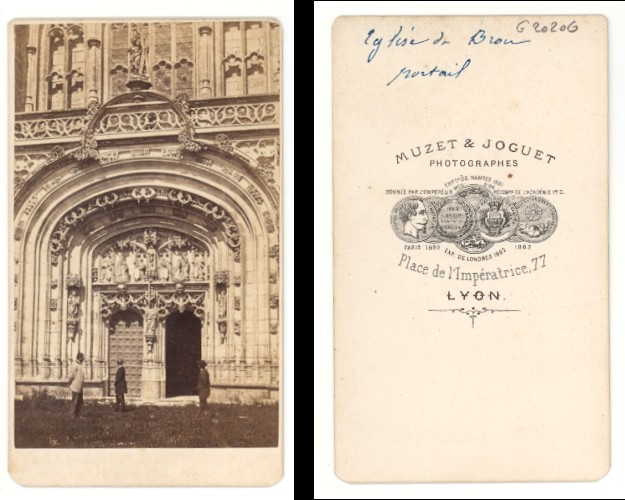 G20206
Eglise de Brou
portail
MUZET & JOGUET
PHOTOGRAPHES
EXP^on DE NANTES 1861
DONNÉE PAR L'EMPEREUR
RÉCOMP^se DE L'ACADÉMIE
PARIS 1860
EXP. DE LONDRES 1862
1863
Place de l'Impératrice, 77
LYON.